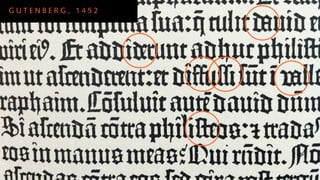 GUTENBERG, 1452
sua: q̃ tulit dauid et
viri ei⁹. Et addiderunt adhuc philisti
im ut ascenderent: et diffusi sūt ī valle
raphaim. Cōsuluit autē dauid dūm
Si ascendā cōtra philisteos: ⁊ tradas
eos in manus meas? Qui rñdit. Nō
ascendas cōtra eos sed